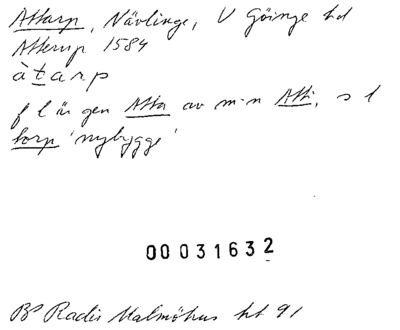 Attarp, Nävlinge, V Göinge hd
Atterup 1584
àtarp
f l är gen Atta av m·n Atti, s l
torp 'nybygge'
00031632
Bo Radis Malmöhus hd 91